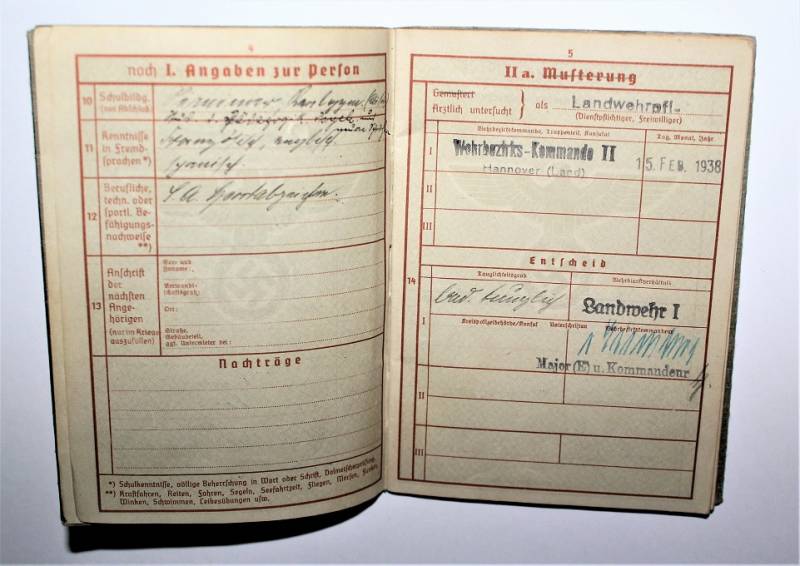 4
noch I. Angaben zur Person
10 Schulbildg.
(mit Abschluß)
11 Kenntnisse
in Fremd-
sprachen *)
Französisch, englisch
spanisch
12 Berufliche,
techn. oder
sportl. Be-
fähigungs-
nachweise
**)
S. A. Sportabzeichen.
13 Anschrift
der
nächsten
Ange-
hörigen
(nur im Kriege
auszufüllen)
Vor- und
Zuname:
Verwandt-
schaftsgrad:
Ort:
Straße,
Gebäudeteil,
ggf. Untermieter bei:
Nachträge
*) Schulkenntnisse, völlige Beherrschung in Wort oder Schrift, Dolmetscherprüfung.
**) Kraftfahren, Reiten, Fahren, Segeln, Seefahrtzeit, Fliegen, Morsen, Funken,
Winken, Schwimmen, Leibesübungen usw.
5
II a. Musterung
Gemustert
Ärztlich untersucht } als Landwehrpfl-
(Dienstpflichtiger, Freiwilliger)
Wehrbezirkskommando, Truppenteil, Konsulat
Tag, Monat, Jahr
I Wehrbezirks-Kommando II
Hannover (Land)
15. FEB. 1938
II
III
Entscheid
14 Tauglichkeitsgrad
Wehrdienstverhältnis
bed. tauglich
Landwehr I
I
Kreispolizeibehörde/Konsul
Unterschriften
Major (E) u. Kommandeur
II
III